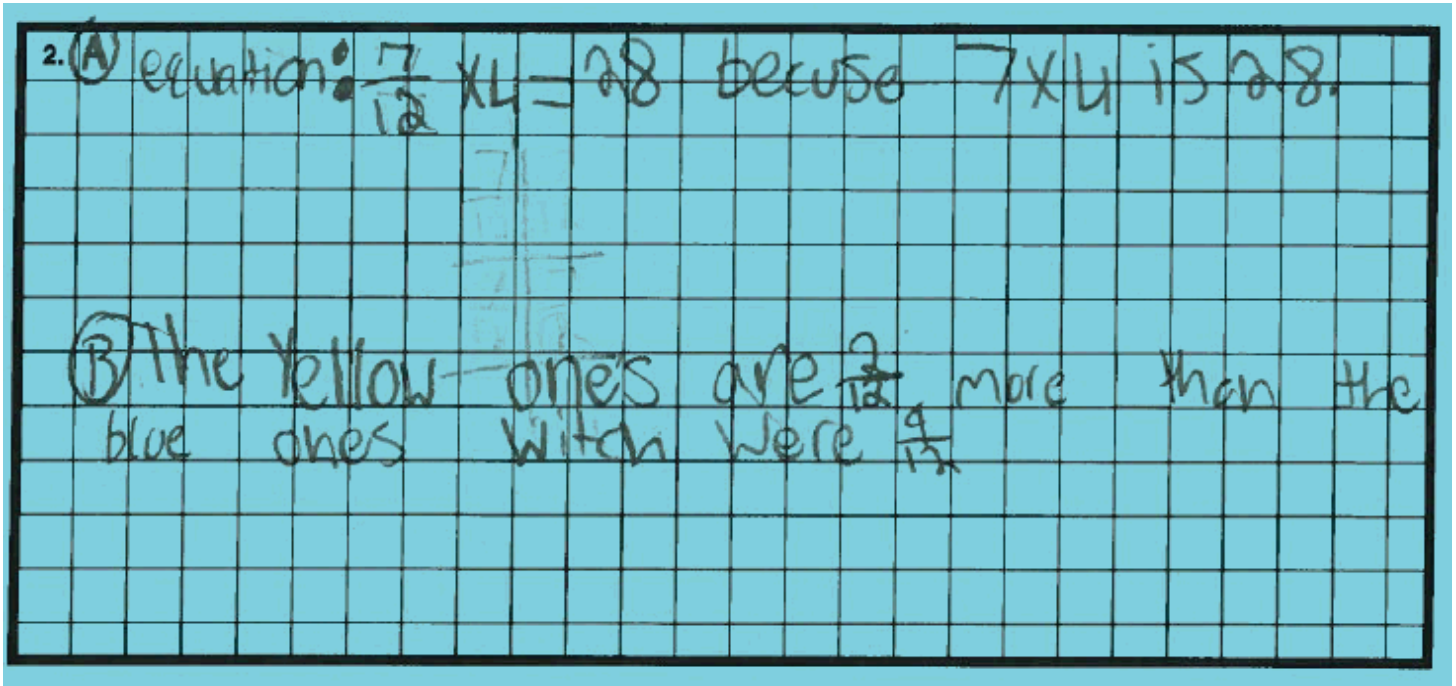 2. A equation: 7/12 x4 = 28 becuse 7x4 is 28.
B The Yellow one's are 2/12 more than the
blue ones witch were 4/12